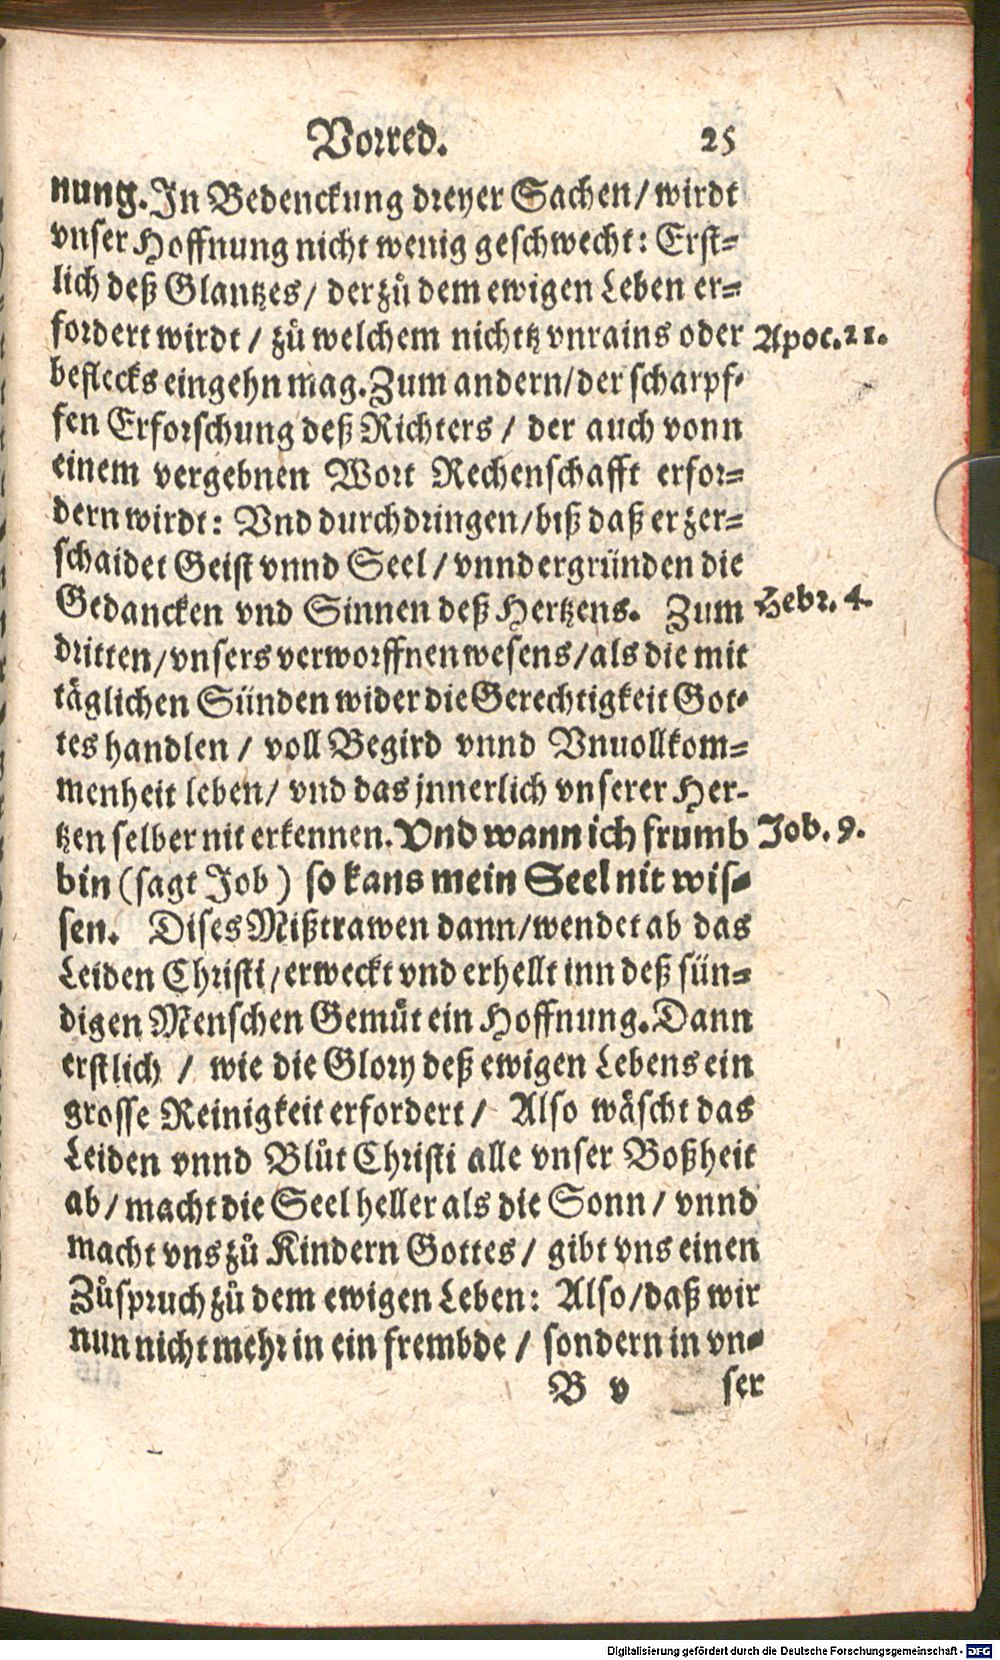 Vorred. 25
nung. In Bedenckung dreyer Sachen/ wirdt
vnser Hoffnung nicht wenig geschwecht: Erst-
lich deß Glantzes/ der zů dem ewigen Leben er-
fordert wirdt/ zů welchem nichtz vnrains oder Apoc. 21.
beflecks eingehn mag. Zum andern/ der scharpf-
fen Erforschung deß Richters/ der auch vonn
einem vergebnen Wort Rechenschafft erfor-
dern wirdt: Vnd durchdringen/ biß daß er zer-
schaidet Geist vnnd Seel/ vnnd ergründen die
Gedancken vnd Sinnen deß Hertzens. Zum Hebr. 4.
dritten/ vnsers verworffnen wesens/ als die mit
täglichen Sünden wider die Gerechtigkeit Got-
tes handlen/ voll Begird vnnd Vnuollkom-
menheit leben/ vnd das jnnerlich vnserer Her-
tzen selber nit erkennen. Vnd wann ich frumb Job. 9.
bin (sagt Job) so kans mein Seel nit wis-
sen. Dises Mißtrawen dann/ wendet ab das
Leiden Christi/ erweckt vnd erhellt inn deß sün-
digen Menschen Gemůt ein Hoffnung. Dann
erstlich/ wie die Glory deß ewigen Lebens ein
grosse Reinigkeit erfordert/ Also wäscht das
Leiden vnnd Blůt Christi alle vnser Boßheit
ab/ macht die Seel heller als die Sonn/ vnnd
macht vns zů Kindern Gottes/ gibt vns einen
Zůspruch zů dem ewigen Leben: Also/ daß wir
nun nicht mehr in ein frembde/ sondern in vn-
B v ser
Digitalisierung gefördert durch die Deutsche Forschungsgemeinschaft - DFG